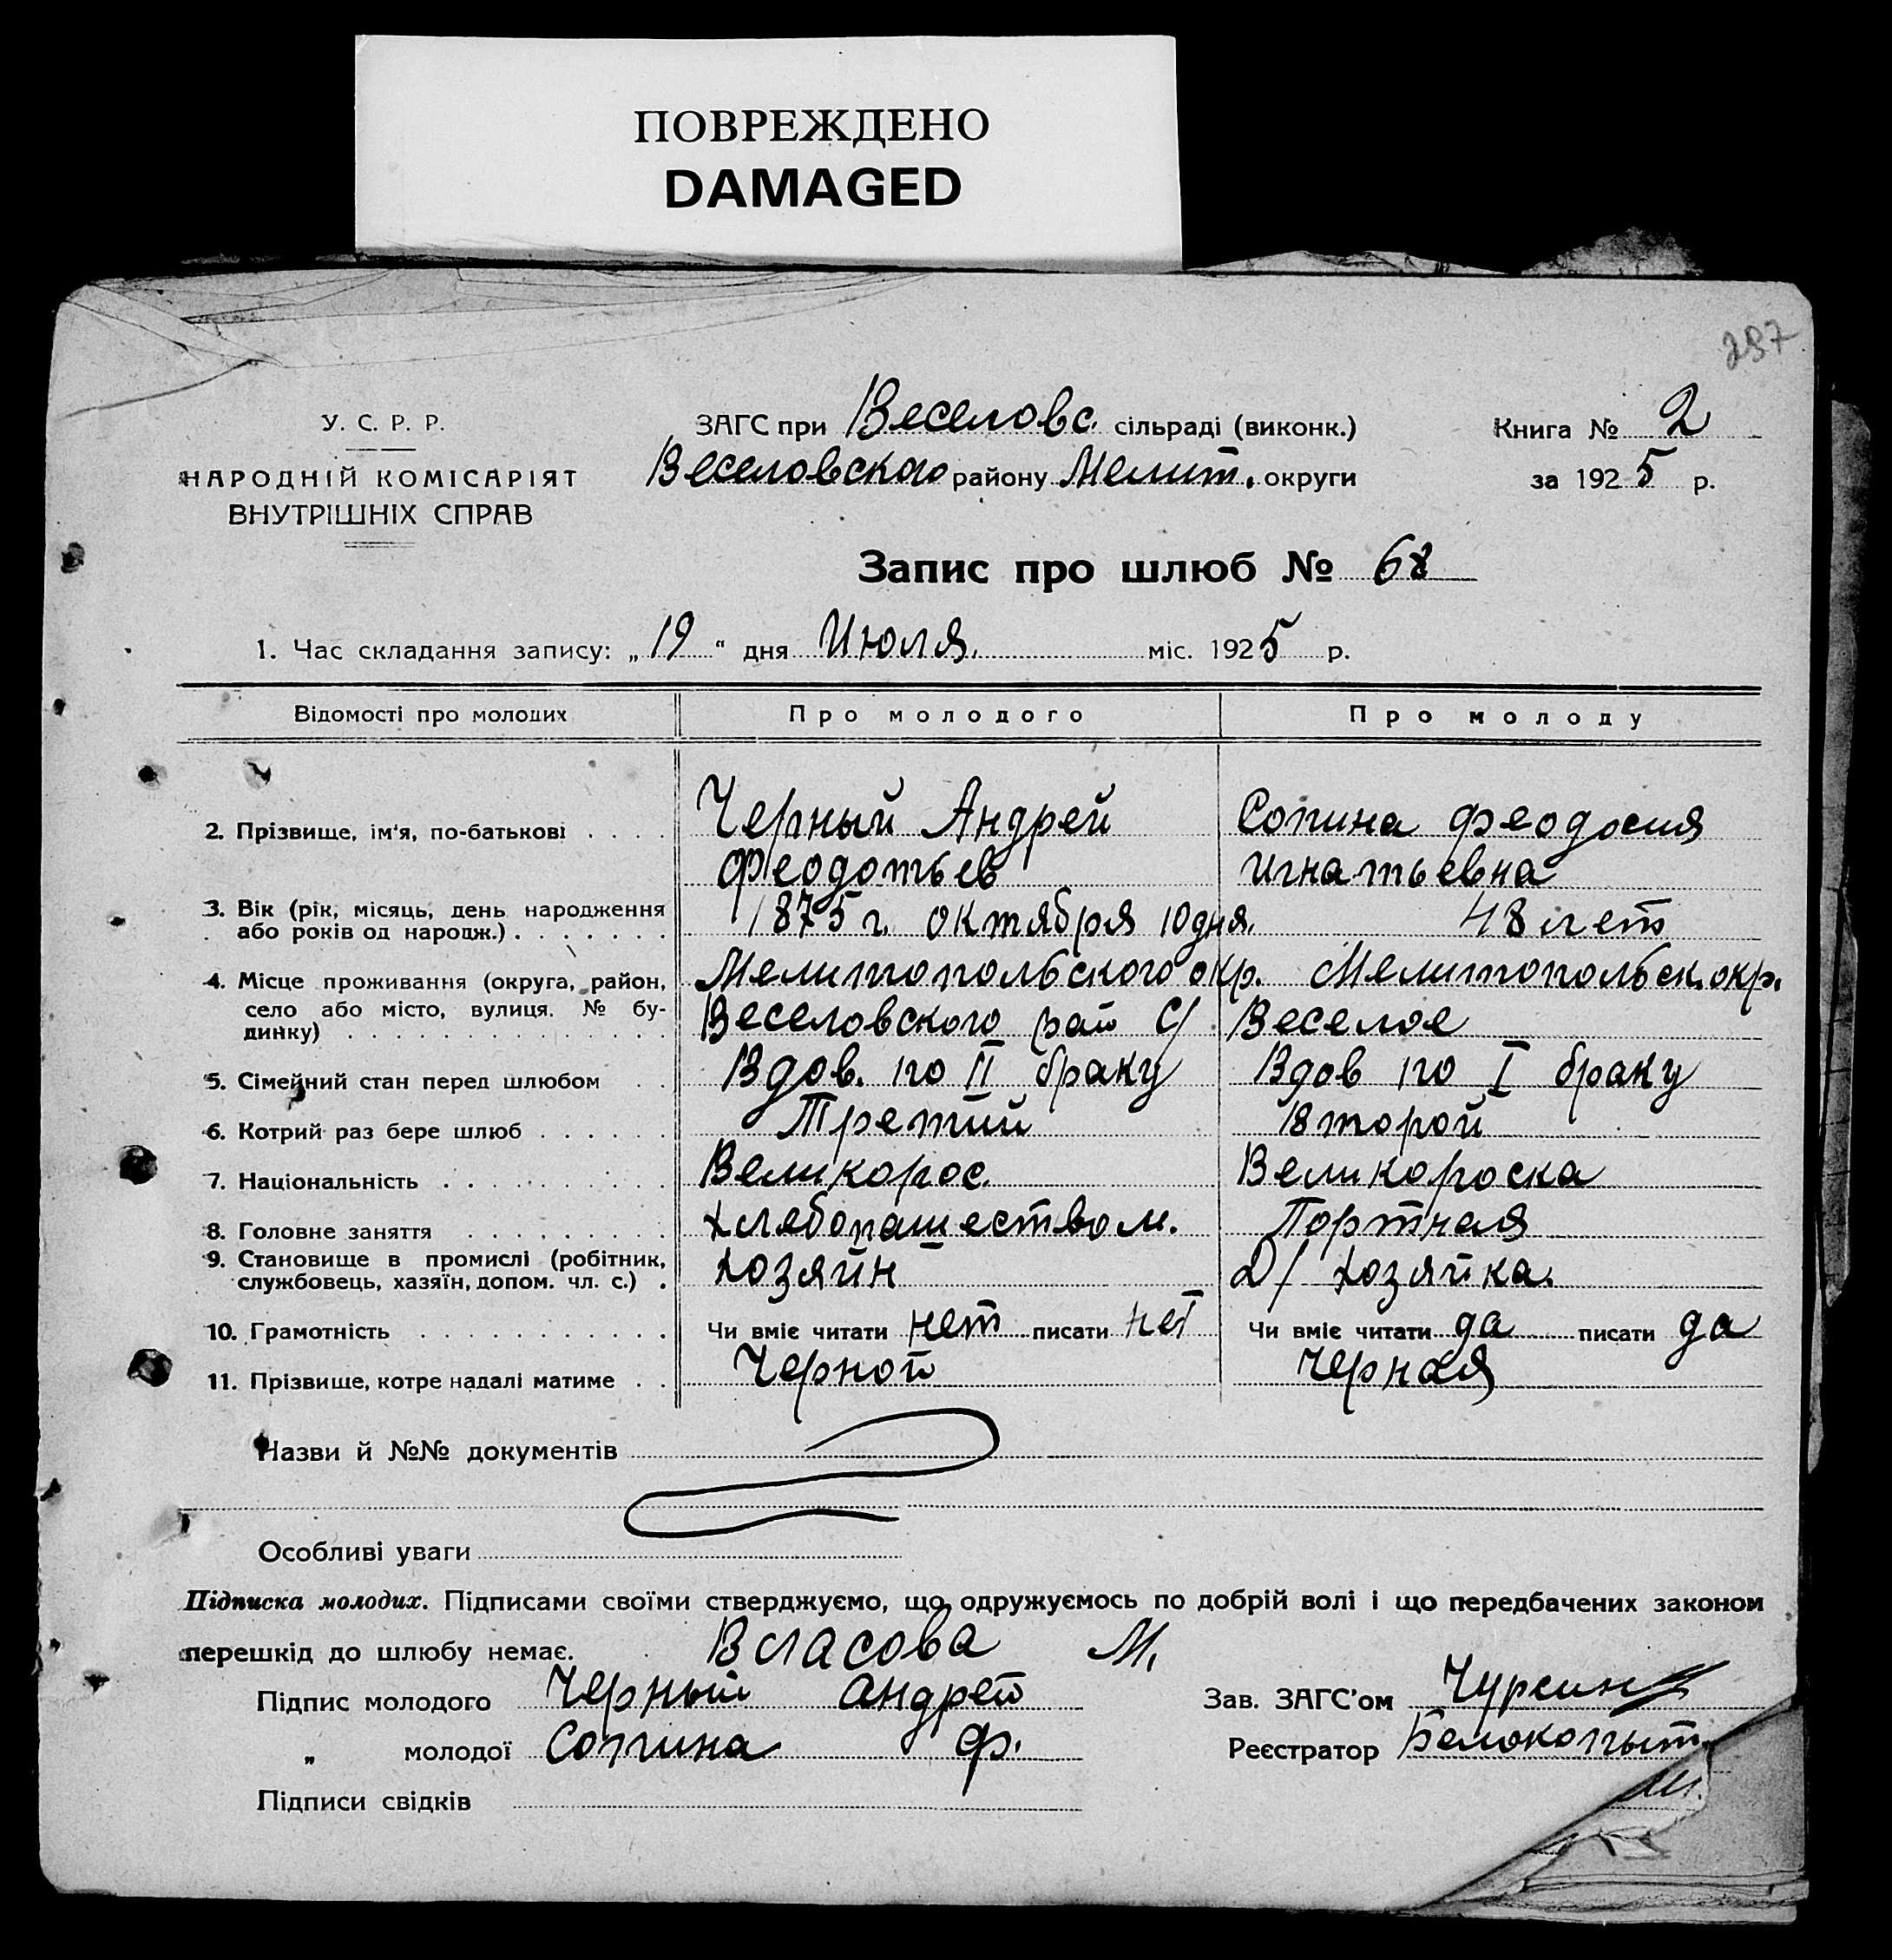 ПОВРЕЖДЕНО
DAMAGED
287
У. С. Р. Р.
НАРОДНІЙ КОМІСАРІЯТ
ВНУТРІШНІХ СПРАВ
ЗАГС при Веселовс. сільраді (виконк.)
Веселовского району Мелит. округи
Книга № 2
за 1925 р.
Запис про шлюб № 68
1. Час складання запису: „19" дня Июля. міс. 1925 р.
Відомості про молодих Про молодого Про молоду
2. Прізвище, ім'я, по-батькові Черный Андрей Сопина Феодосия
Феодотьев Игнатьевна
3. Вік (рік, місяць, день народження
або років од народж.) 1875 г. октября 10 дня. 48 лет
4. Місце проживання (округа, район, Мелитопольского окр. Мелитопольск. окр.
село або місто, вулиця. № бу-
динку) Веселовского рай С/ Веселое
5. Сімейний стан перед шлюбом Вдов. по II браку Вдов по I браку
6. Котрий раз бере шлюб Третий Второй
7. Національність Великорос. Великороска
8. Головне заняття Хлебопашеством. Портная
9. Становище в промислі (робітник,
службовець, хазяїн, допом. чл. с.) Хозяйн Д/ Хозяйка.
10. Грамотність Чи вміє читати нет писати нет Чи вміє читати да писати да
11. Прізвище, котре надалі матиме Черной Черная
Назви й №№ документів
Особливі уваги
Підписка молодих. Підписами своїми стверджуємо, що одружуємось по добрій волі і що передбачених законом
перешкід до шлюбу немає. Власова М.
Підпис молодого Черный Андрей
Зав. ЗАГС'ом Чурсин
„ молодої Сопина Ф.
Реєстратор Белокопыт
Підписи свідків